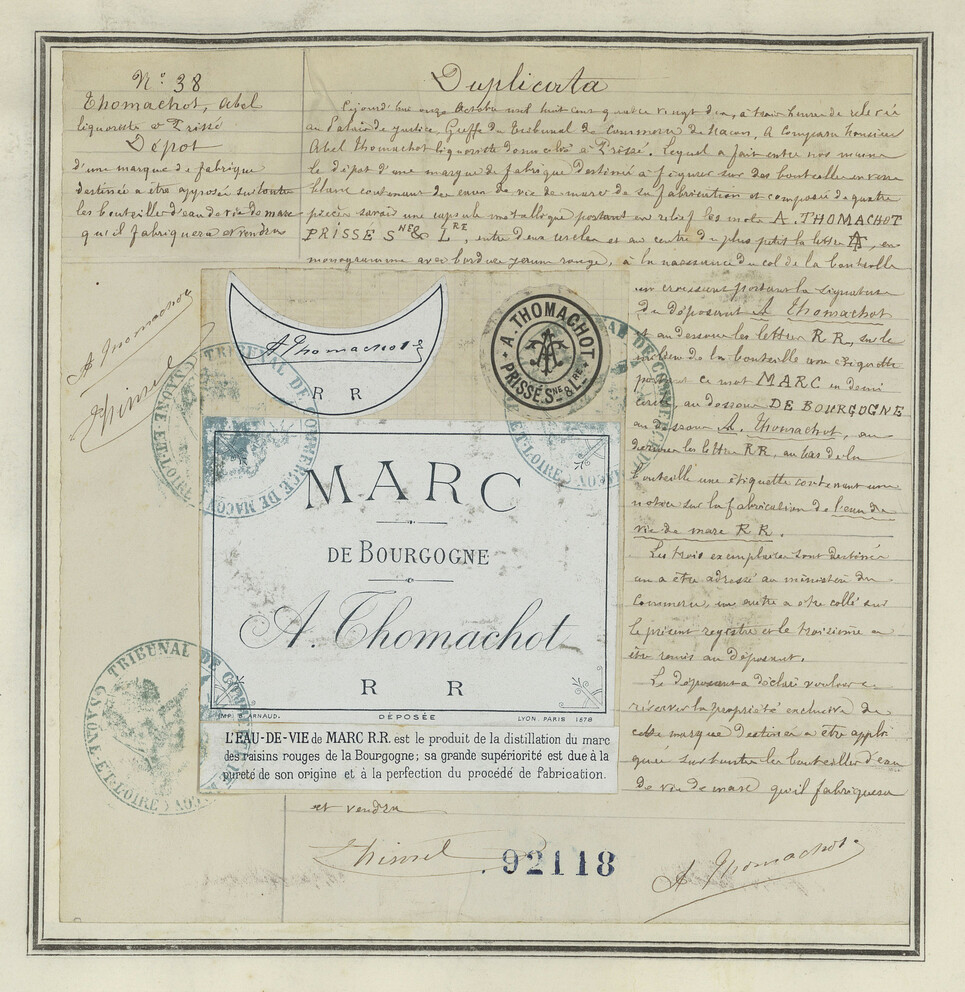 N° 38
Thomachot, Abel
liquoriste à Prissé
Dépot
d'une marque de fabrique
destinée a être apposée sur toutes
les bouteilles d'eau de vie de marc
qu'il fabriquera et vendra
A Thomachot
Duplicata
Cejourd'hui onze Octobre mil huit cent quatre vingt dix, à trois heures de relevée
au Palais de Justice, Greffe du Tribunal de Commerce de Macon, A comparu Monsieur
Abel Thomachot liquoriste domicilié à Prissé. Lequel a fait entre nos mains
le dépot d'une marque de fabrique destinée à figurer sur des bouteilles en verre
blanc contenant des eaux de vie de marc de sa fabrication et composée de quatre
pièces savoir une capsule métallique portant en relief les mots A. THOMACHOT
PRISSE SNE & LRE, entre deux cercles et au centre du plus petit la lettre A, en
monogramme avec bordure jaune rouge, à la naissance du col de la bouteille
un croissant portant la signature
du déposant A Thomachot
et au dessous les lettres R R, sur le
milieu de la bouteille une étiquette
portant ce mot MARC en demi
cercle, au dessous DE BOURGOGNE
au dessous A. Thomachot, au
dessous les lettres RR, au bas de la
bouteille une étiquette contenant une
notice sur la fabrication de l'eau de
vie de marc RR.
Les trois exemplaires sont destinés
un a être adressé au ministère du
Commerce, un autre a être collé sur
le présent registre et le troisième a
être remis au déposant.
Le déposant a déclaré vouloir se
réserver la propriété exclusive de
cette marque destinée a être appli
quée sur toutes les bouteilles d'eau
de vie de marc qu'il fabriquera
et vendra
A Thomachot
R R
A. THOMACHOT
PRISSÉ. SNE & LRE
MARC
DE BOURGOGNE
A. Thomachot
R R
IMP. B. ARNAUD. DÉPOSÉE LYON. PARIS 1878
L'EAU-DE-VIE de MARC R.R. est le produit de la distillation du marc
des raisins rouges de la Bourgogne; sa grande supériorité est due à la
pureté de son origine et à la perfection du procédé de fabrication.
TRIBUNAL DE COMMERCE DE MACON
SAONE-ET-LOIRE
TRIBUNAL DE COMMERCE
SAONE-ET-LOIRE
92118
A Thomachot